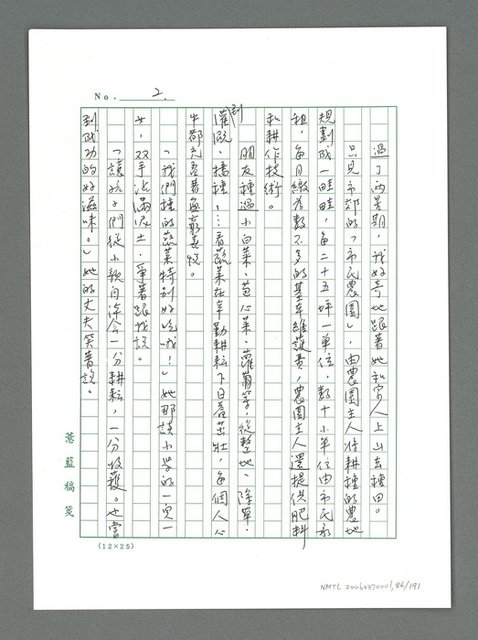 No. 2.
過了兩星期，我好奇地跟著她和家人上山去種田。
只見市郊的「市民農園」，由農園主人將耕種的農地
規劃成一畦畦，每二十五坪一單位，數十小單位由市民承
租，每月繳為數不多的基本維護費，農園主人還提供肥料
和耕作技術。
朋友種過小白菜、包心菜、蘿蔔等，從整地、除草、
灌溉、播種、…到看蔬菜在辛勤耕耘下日益茁壯，每個人心
中都充盈著無窮喜悅。
「我們種的蔬菜特別好吃哦！」她那讀小學的一兒一
女，双手沾滿泥土，爭著跟我說。
「讓孩子們從小就向許今一分耕耘，一分收穫。也當
到成功的好滋味。」她的丈夫笑著說。
薏藍稿箋
(12×25)
NMTL 20060370001, 86/191